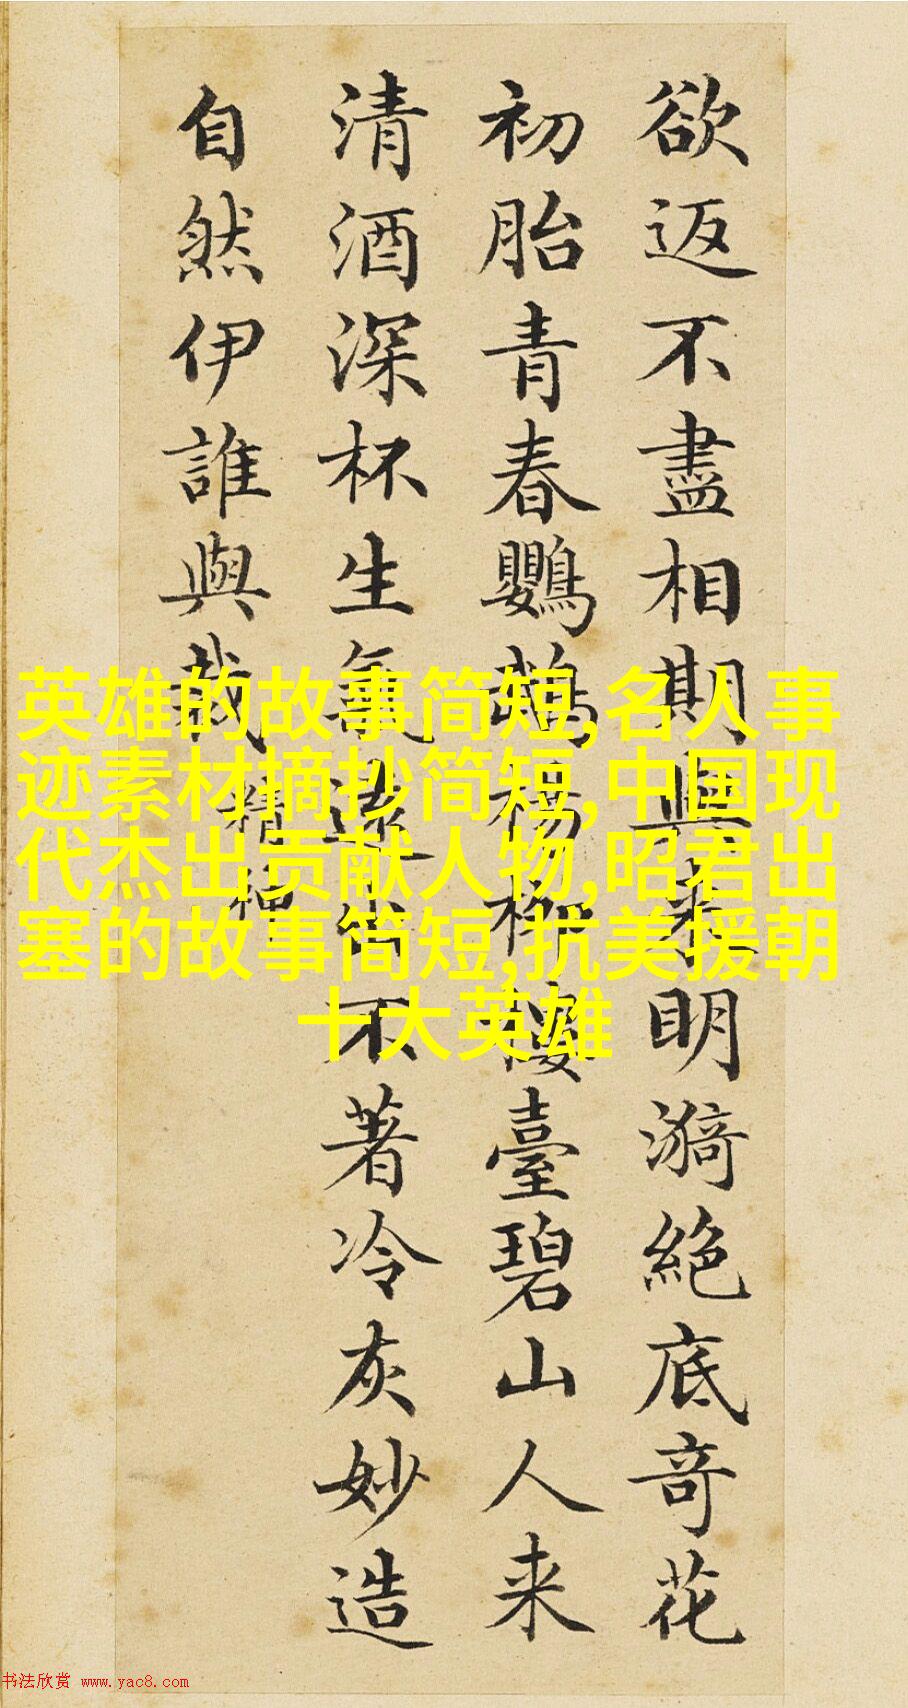 欲返不盡相期與来明漪絶底奇花
初胎青春鸚鵡楊柳樓臺碧山人来
清酒深杯生氣遠出不著冷灰妙造
自然伊誰與裁
精神
英雄的故事简短,名人事
迹素材摘抄简短,中国现
代杰出贡献人物,昭君出
塞的故事简短,抗美援朝
十大英雄
书法欣赏 www.yac8.com